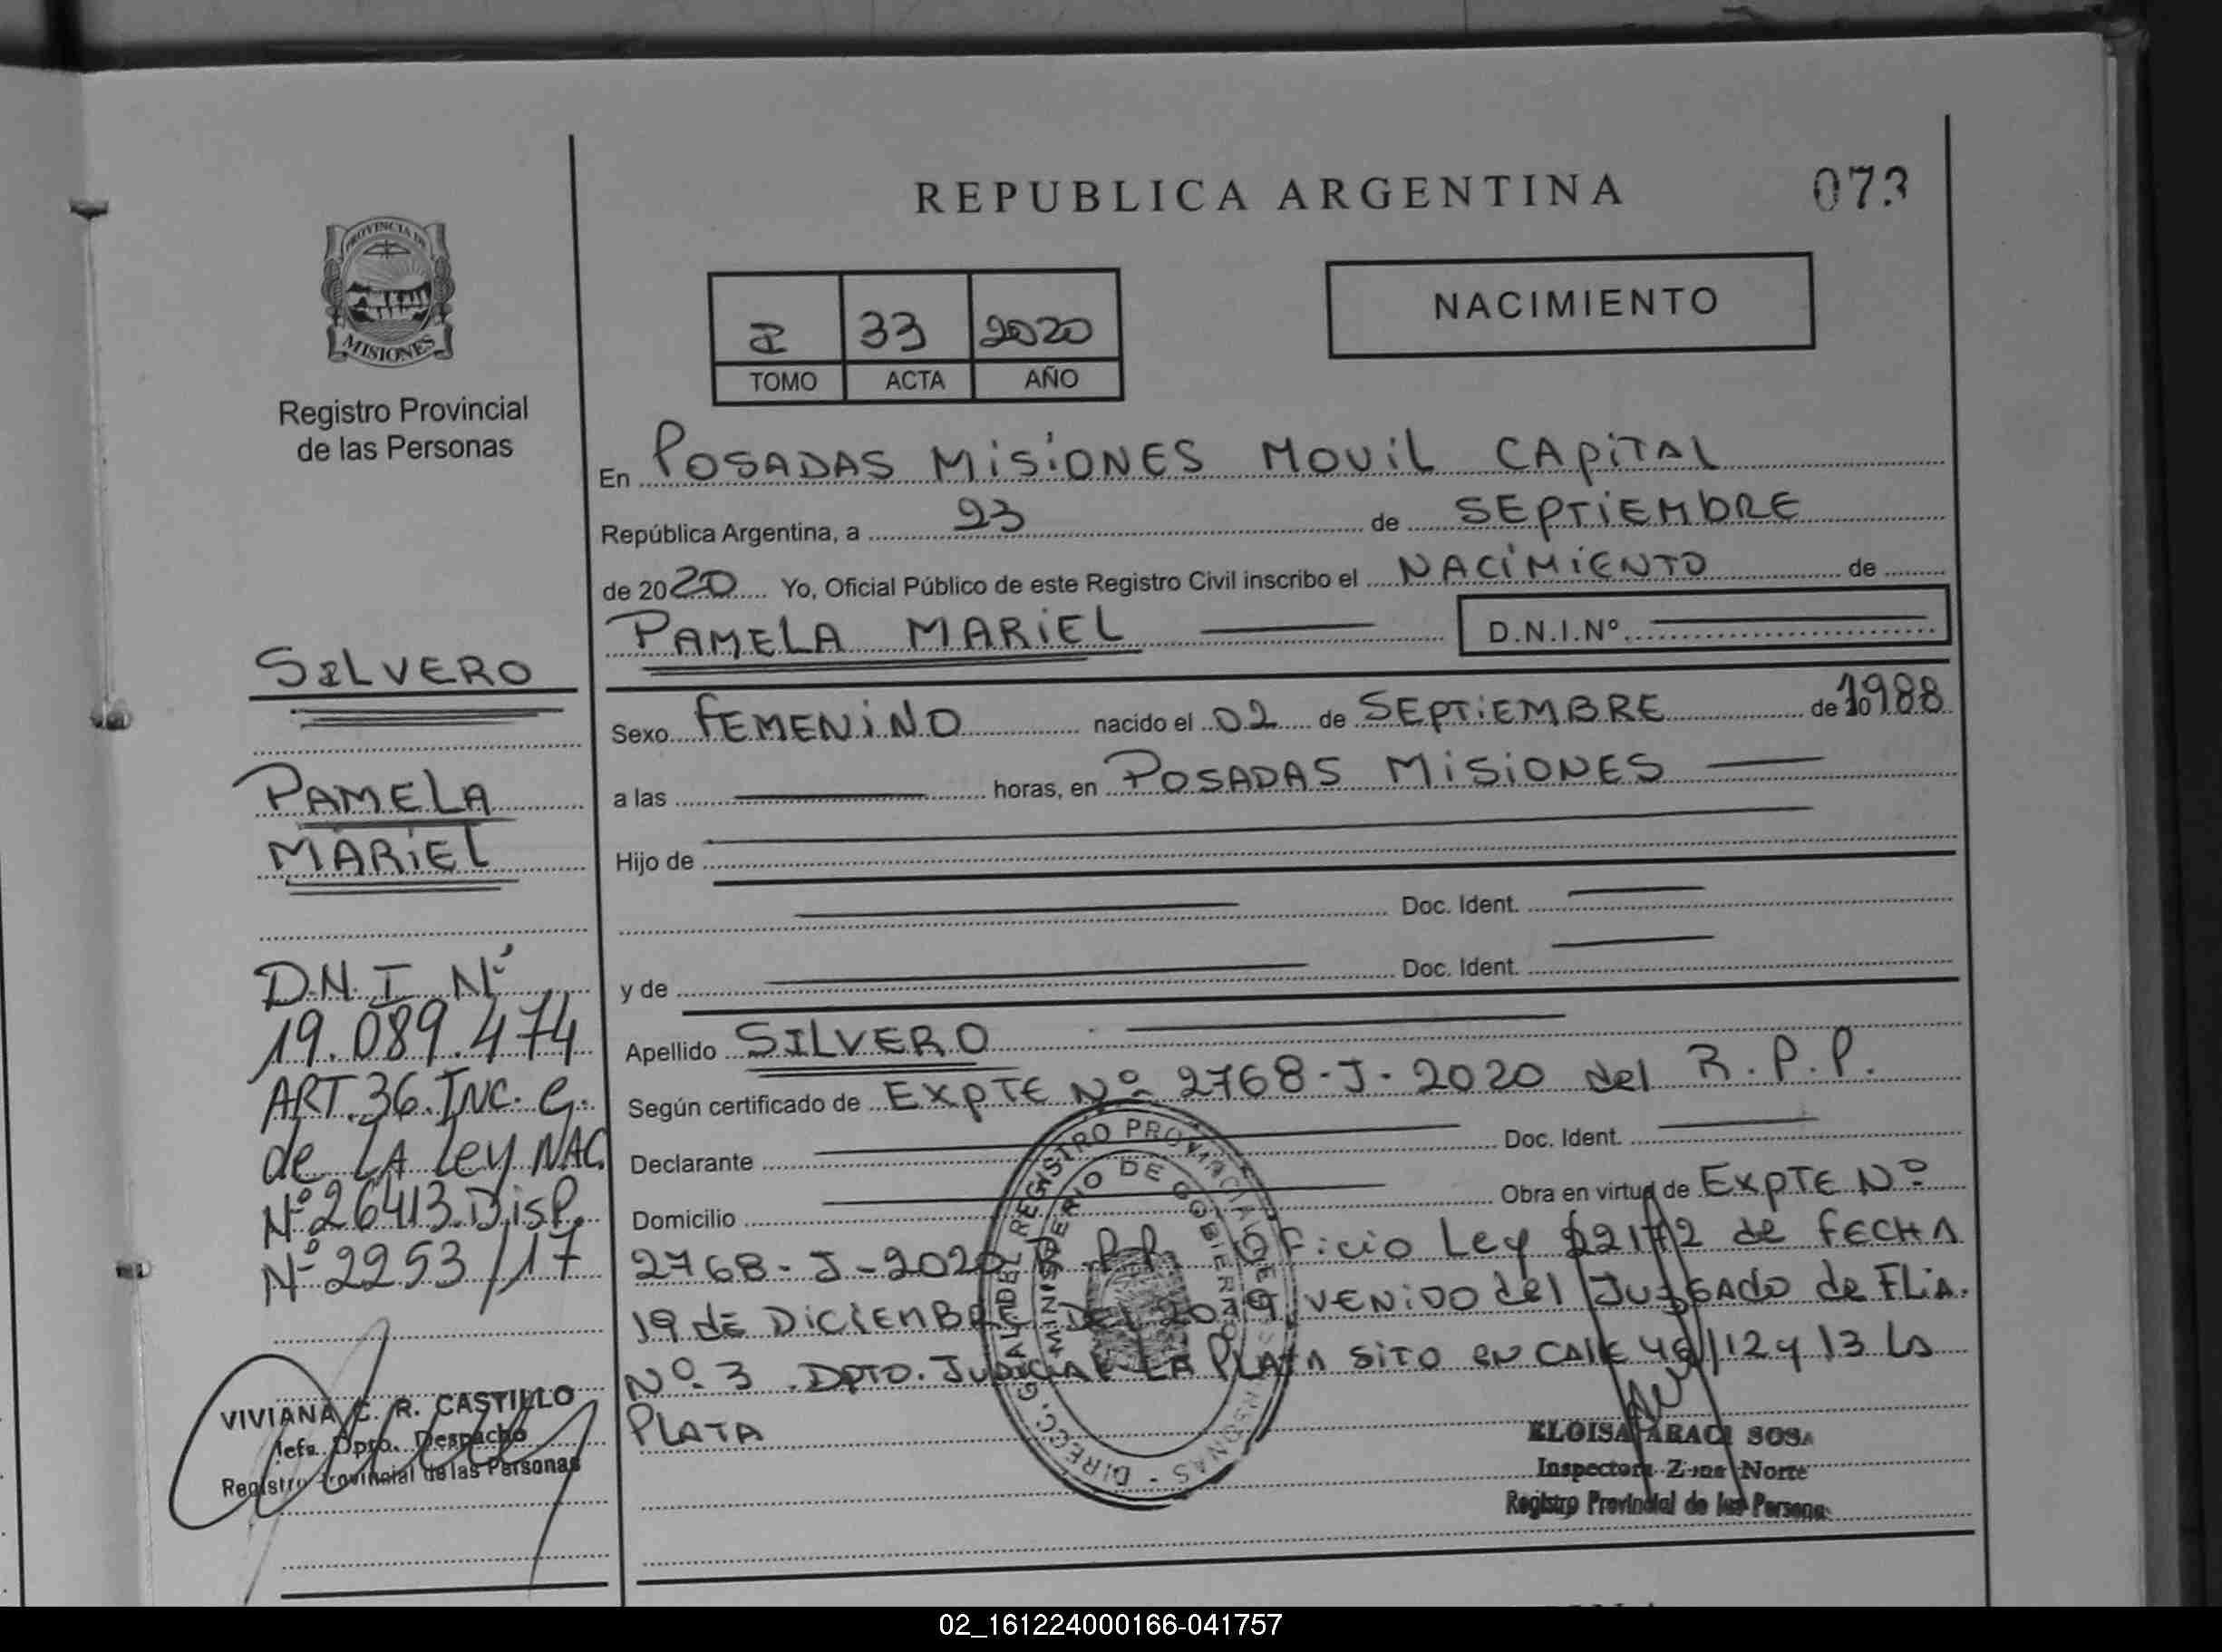 REPUBLICA ARGENTINA
073
PROVINCIA DE
MISIONES
Registro Provincial
de las Personas
I 33 2020
TOMO ACTA AÑO
NACIMIENTO
En POSADAS MISIONES MOVIL CAPITAL
República Argentina, a 23 de SEPTIEMBRE
de 2020 Yo, Oficial Público de este Registro Civil inscribo el NACIMIENTO de
PAMELA MARIEL D.N.I.Nº
Sexo FEMENINO nacido el 02 de SEPTIEMBRE de 1988
a las horas, en POSADAS MISIONES
Hijo de
Doc. Ident.
y de Doc. Ident.
Apellido SILVERO
Según certificado de EXPTE Nº 2768-J-2020 del R.P.P.
Declarante Doc. Ident.
Domicilio Obra en virtud de EXPTE Nº
2768-J-2020 R.P.P. Oficio Ley 22172 de FECHA
19 de DICIEMBRE DEL 2019 VENIDO del JUZGADO de FLIA.
Nº 3 DPTO. JUDICIAL LA PLATA SITO EN CALLE 48/12 y 13 LA
PLATA
SILVERO
PAMELA
MARIEL
D.N.I Nº
19.089.474
ART.36.INC.e.
de LA Ley NAC.
Nº26413.Disp.
Nº2253/17
VIVIANA C. R. CASTILLO
Jefa Dpto. Despacho
Registro Provincial de las Personas
DIRECC. GRAL DEL REGISTRO PROVINCIAL DE LAS PERSONAS
MINISTERIO DE GOBIERNO
ELOISA ARACI SOSA
Inspectora Zona Norte
Registro Provincial de las Personas
02_161224000166-041757